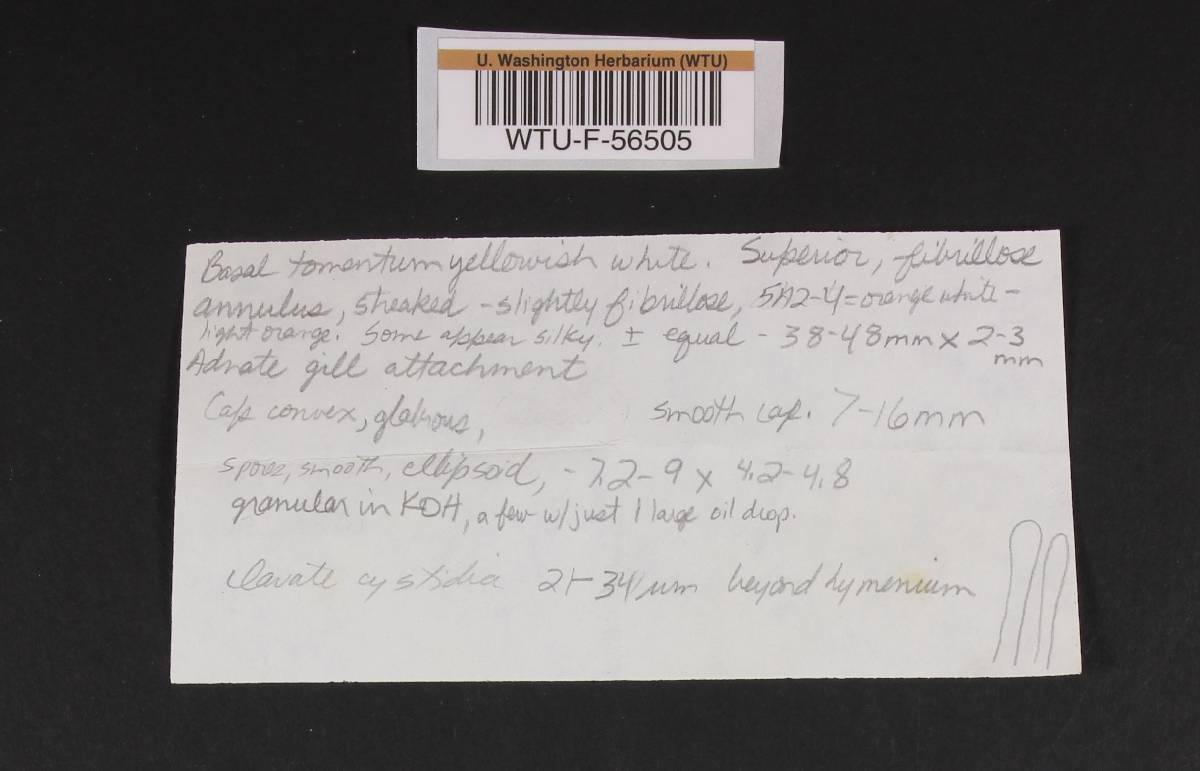 U. Washington Herbarium (WTU)
WTU-F-56505
Basal tomentum yellowish white. Superior, fibrillose
annulus, streaked - slightly fibrillose, 5A2-4 = orange white -
light orange. Some appear silky. ± equal - 38-48mm x 2-3
mm
Adnate gill attachment
Cap convex, glabrous, smooth cap. 7-16mm
spores, smooth, ellipsoid, - 7.2-9 x 4.2-4.8
granular in KOH, a few w/just 1 large oil drop.
clavate cystidia 21-34µm beyond hymenium